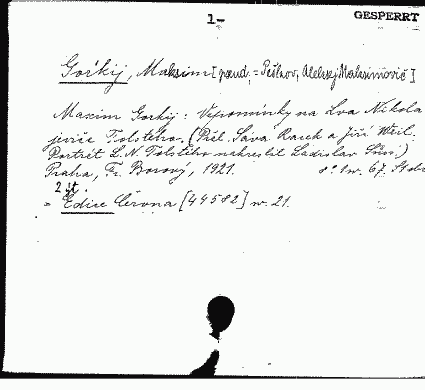 1- GESPERRT
Gor'kij, Maksim [pseud. = Peškov, Aleksej Maksimovič]
Maxim Gorkij: Vzpomínky na Lva Nikola
jeviče Tolstého. (Přel. Sáva Racek a Jiří Weil.
Portrét L. N. Tolstého nakreslil Ladislav Süss.)
Praha, Fr. Borový, 1921. 8° 1 w. 67. S
2 št.
= Edice Června [44582] w. 21.